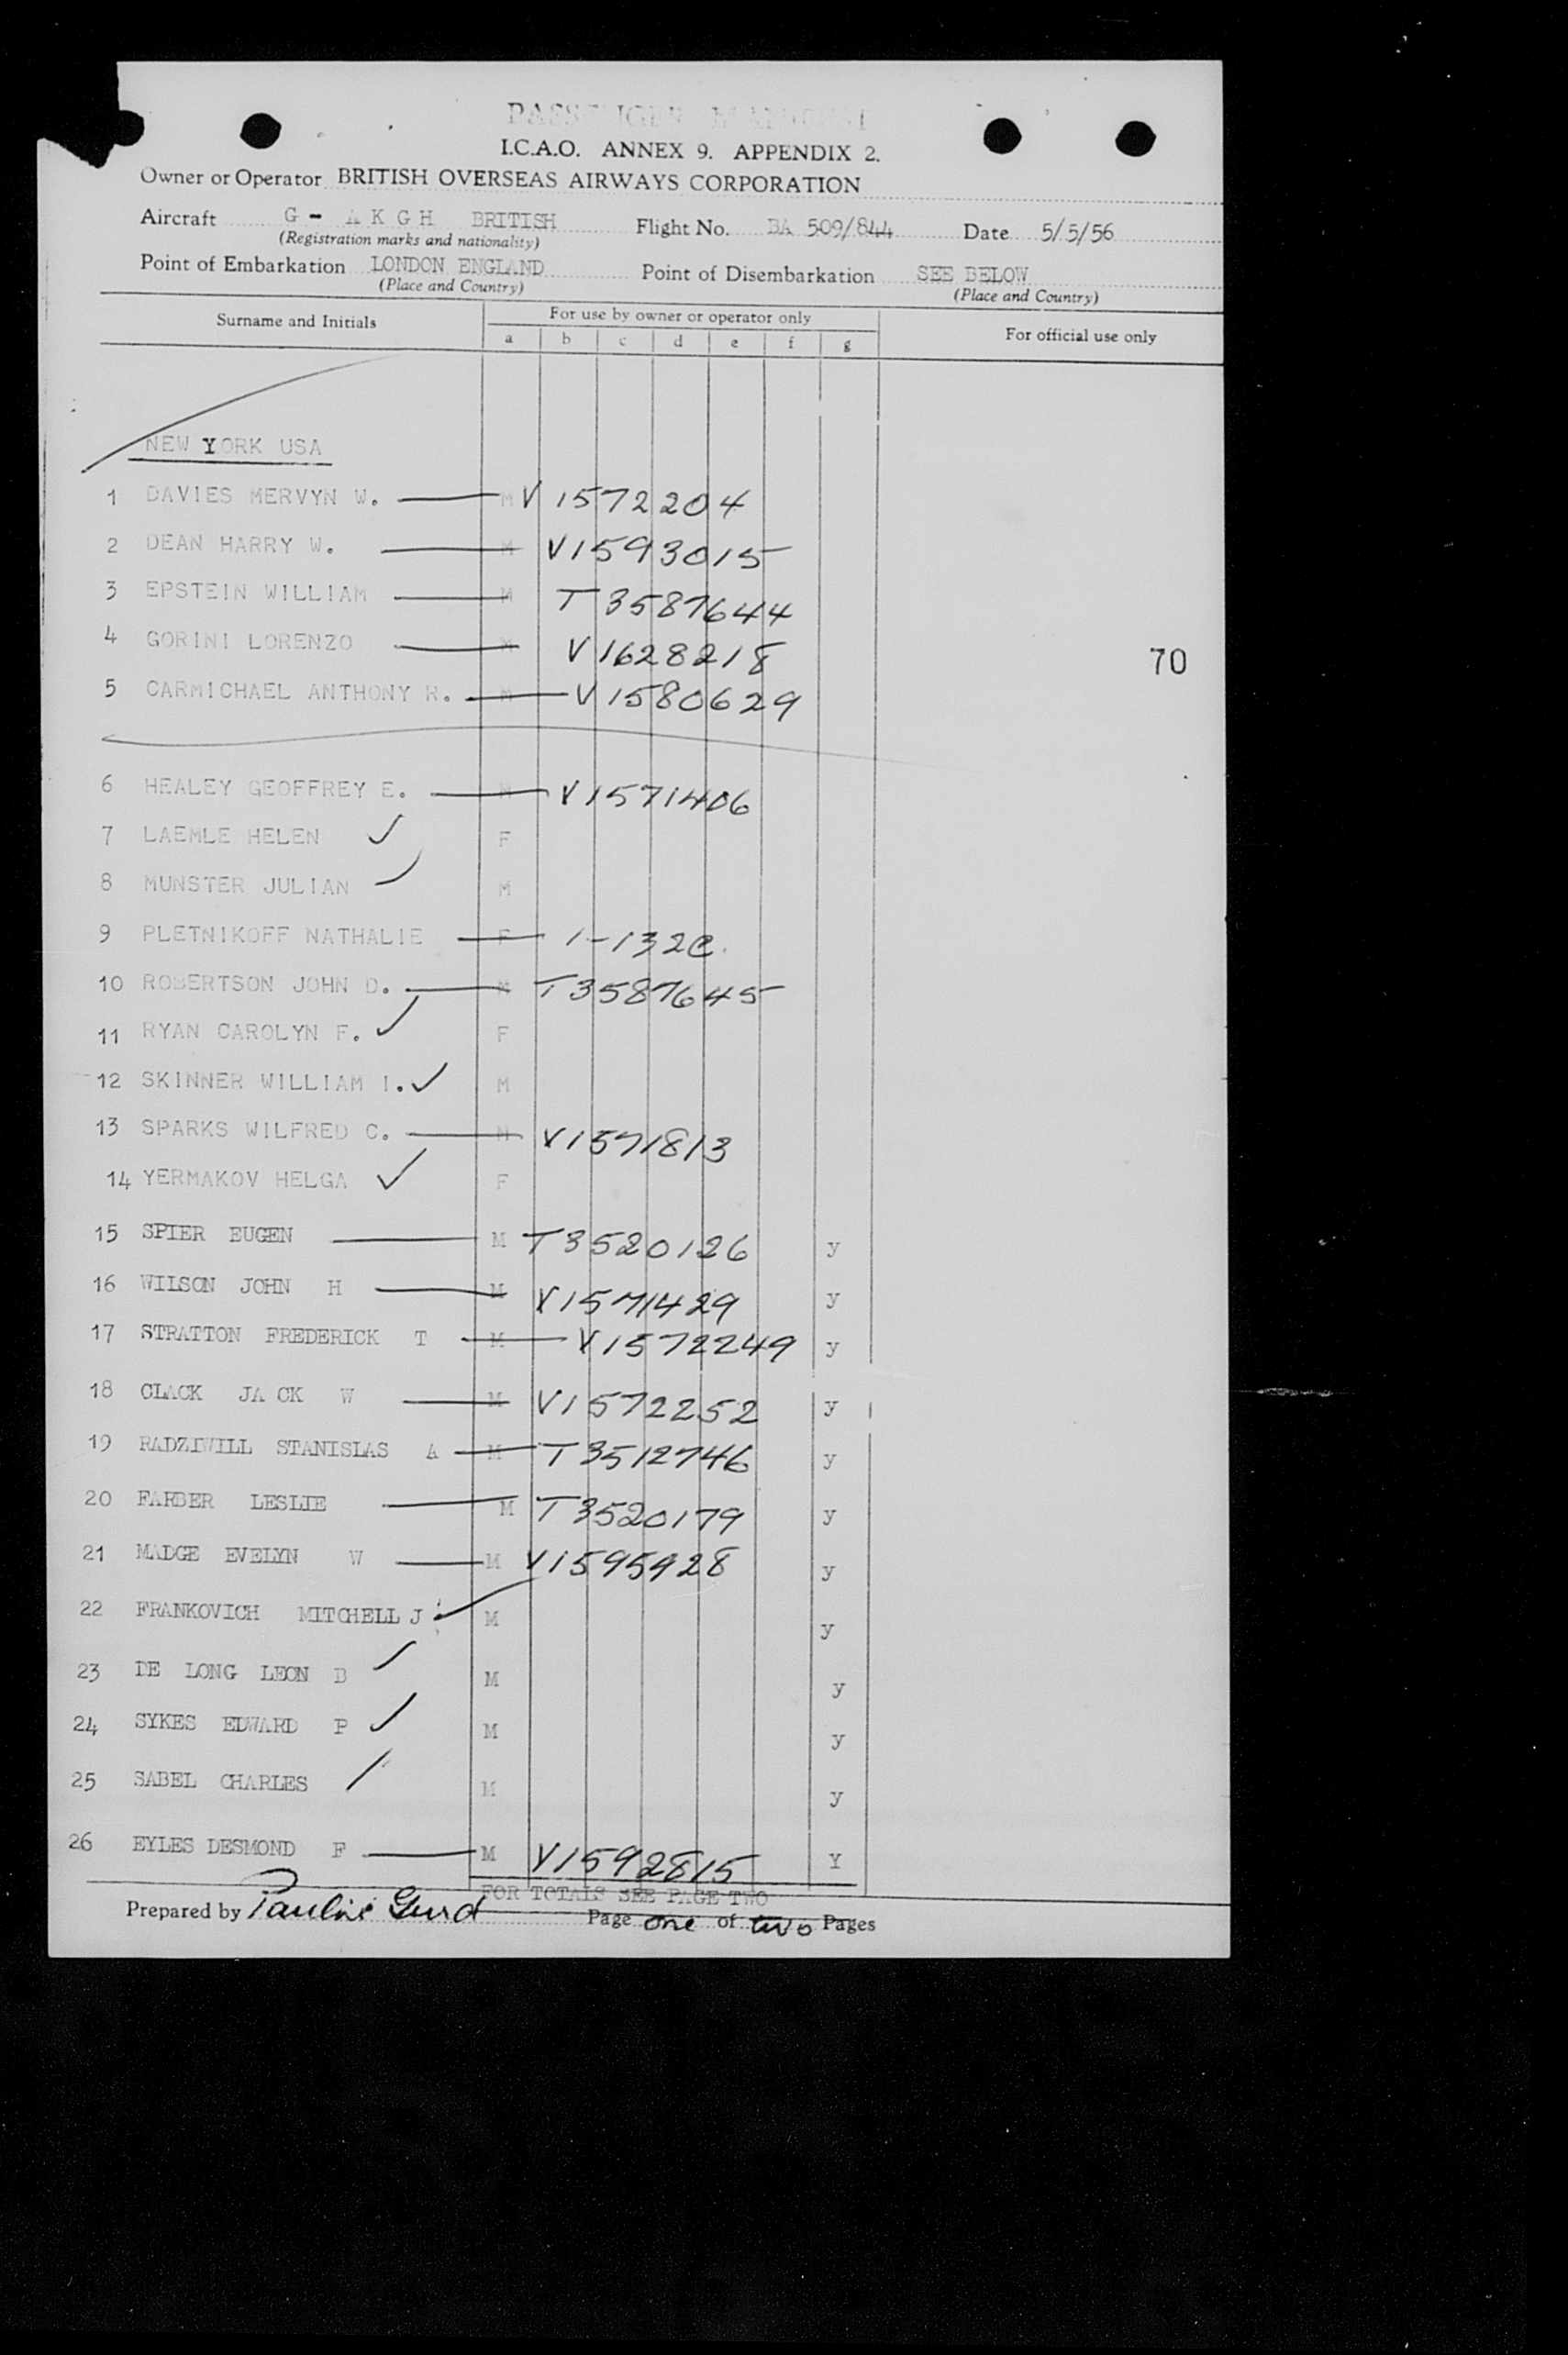 PASSENGER MANIFEST
I.C.A.O. ANNEX 9. APPENDIX 2.
Owner or Operator BRITISH OVERSEAS AIRWAYS CORPORATION
Aircraft G - A K G H BRITISH Flight No. BA 509/844 Date 5/5/56
(Registration marks and nationality)
Point of Embarkation LONDON ENGLAND Point of Disembarkation SEE BELOW
(Place and Country) (Place and Country)
Surname and Initials For use by owner or operator only For official use only
a b c d e f g
NEW YORK USA
1 DAVIES MERVYN W. M V 1572204
2 DEAN HARRY W. M V1593015
3 EPSTEIN WILLIAM M T 3587644
4 GORINI LORENZO M V1628218
70
5 CARMICHAEL ANTHONY R. M V1580629
6 HEALEY GEOFFREY E. M V1571406
7 LAEMLE HELEN ✓ F
8 MUNSTER JULIAN M
9 PLETNIKOFF NATHALIE F 1-132C.
10 ROBERTSON JOHN D. M T3587645
11 RYAN CAROLYN F. ✓ F
12 SKINNER WILLIAM I. ✓ M
13 SPARKS WILFRED C. M V1571813
14 YERMAKOV HELGA ✓ F
15 SPIER EUGEN M T3520126 y
16 WILSON JOHN H M V1571429 y
17 STRATTON FREDERICK T M V1572249 y
18 CLACK JACK W M V1572252 y
19 RADZIWILL STANISLAS A M T3512746 y
20 FARBER LESLIE M T3520179 y
21 MADGE EVELYN W M V1595928 y
22 FRANKOVICH MITCHELL J M y
23 DE LONG LEON B M y
24 SYKES EDWARD P ✓ M y
25 SABEL CHARLES M y
26 EYLES DESMOND F M V1592815 Y
FOR TOTALS SEE PAGE TWO
Prepared by Pauline Gurd Page one of two Pages